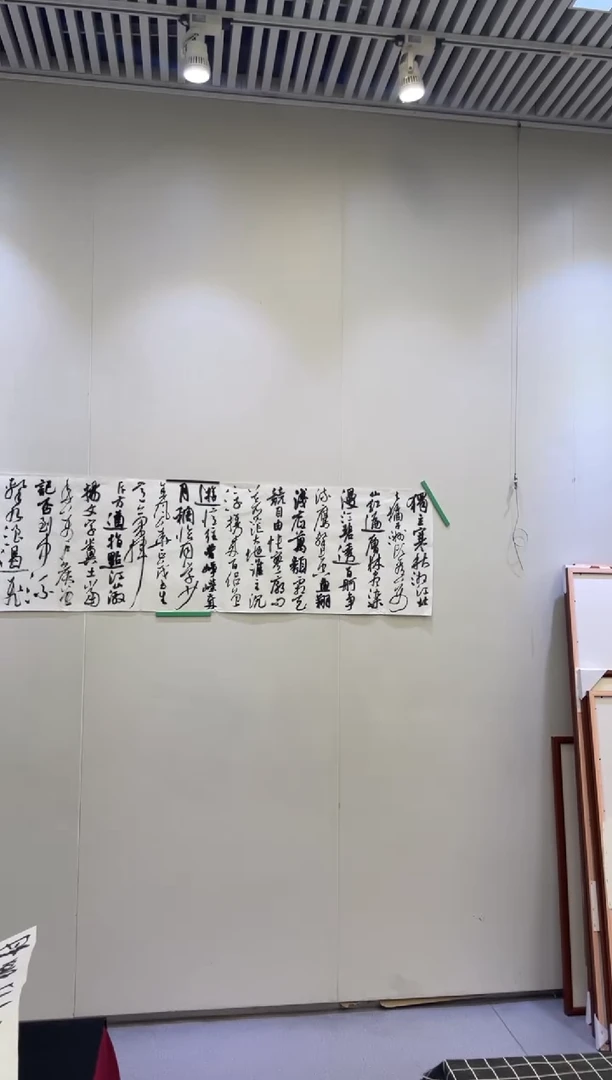 獨立寒秋湘江北
去橘子洲頭看萬
山紅遍層林盡染
漫江碧透百舸爭
流鷹擊長空魚翔
淺底萬類霜天
競自由悵寥廓問
蒼茫大地誰主沉
浮攜來百侶曾
遊憶往昔崢嶸歲
月稠恰同學少
年風華正茂書生
意氣揮
斥方遒指點江山激
揚文字糞土當
年萬戶侯曾
記否到中流
擊水浪遏飛